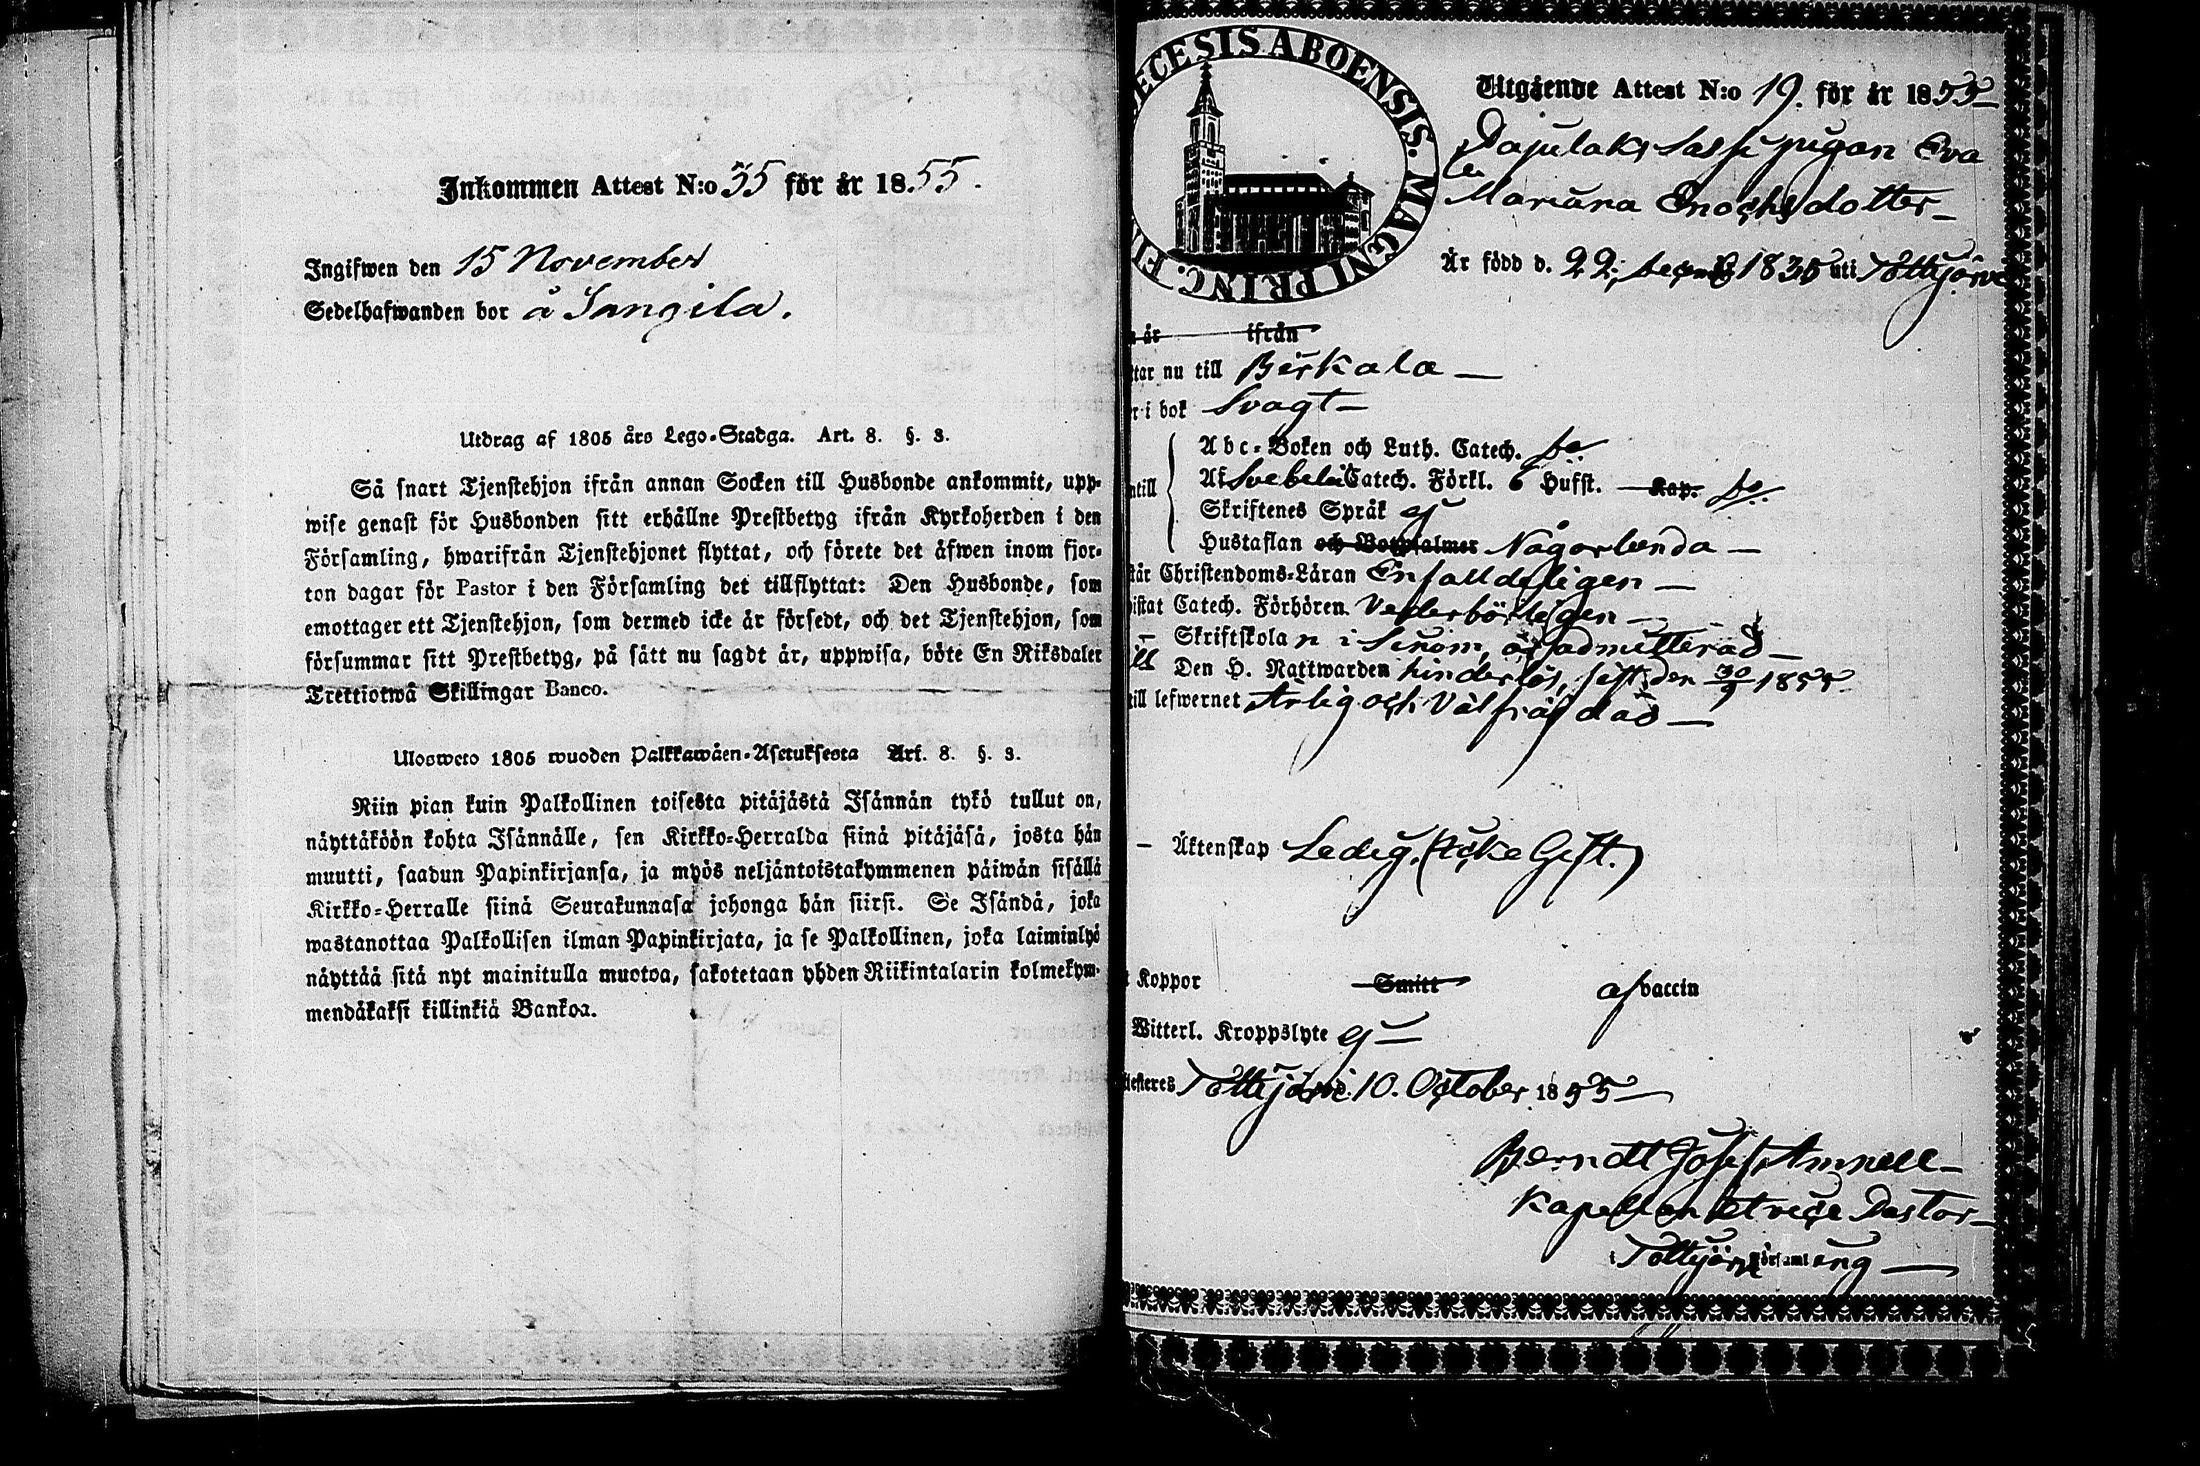 Inkommen Attest N:o 35 för år 1855.
Ingifwen den 15 November
Sedelhafwanden bor å Sangila.
Utdrag af 1805 års Lego-Stadga. Art. 8. §. 3.
Så snart Tjenstehjon ifrån annan Socken till Husbonde ankommit, upp-
wise genast för Husbonden sitt erhållne Prestbetyg ifrån Kyrkoherden i den
Församling, hwarifrån Tjenstehjonet flyttat, och förete det äfwen inom fjor-
ton dagar för Pastor i den Församling det tillflyttat: Den Husbonde, som
emottager ett Tjenstehjon, som dermed icke är försedt, och det Tjenstehjon, som
försummar sitt Prestbetyg, på sätt nu sagdt är, uppwisa, böte En Riksdaler
Trettiotwå Skillingar Banco.
Ulosweto 1805 wuoden Palkkawäen-Asetuksesta Art. 8. §. 3.
Niin pian kuin Palkollinen toisesta pitäjästä Isännän tykö tullut on,
näyttäköön kohta Isännälle, sen Kirkko-Herralda siinä pitäjäsä, josta hän
muutti, saadun Papinkirjansa, ja myös neljäntoistakymmenen päiwän sisällä
Kirkko-Herralle siinä Seurakunnasa johonga hän siirsi. Se Isändä, joka
wastanottaa Palkollisen ilman Papinkirjata, ja se Palkollinen, joka laiminlyö
näyttää sitä nyt mainitulla muotoa, sakotetaan yhden Riikintalarin kolmekym-
mendäkaksi killinkiä Bankoa.
ECESIS ABOENSIS. MAGNI PRINC. FI
Utgående Attest N:o 19. för år 1855
pigan Eva
Mariana Enochsdotter
Är född d. 22 1835 uti Tottijärvi
är ifrån
tar nu till Birkala
r i bok Svagt
Abc-Boken och Luth. Catech.
ntill Af Svebelii Catech. Förkl. 6 Hufst. Kap.
Skriftenes Språk ej
Hustaflan och Botpsalmer Någorlunda
tår Christendoms-Läran Enfalldeligen
istat Catech. Förhören Vederbörligen
Skriftskolan i admitterad
Den H. Nattwarden hinderlös, sist den 30/9 1855
till lefwernet Ärlig och Välfräjdad
Äktenskap Ledig. (Icke Gift.)
Koppor Smitt af vaccin
Witterl. Kroppslyte ej
testeres Tottijärvi 10. October 1855
Berndt Josef Amnell
Kapellan et vice Pastor
i Tottijärvi Församling